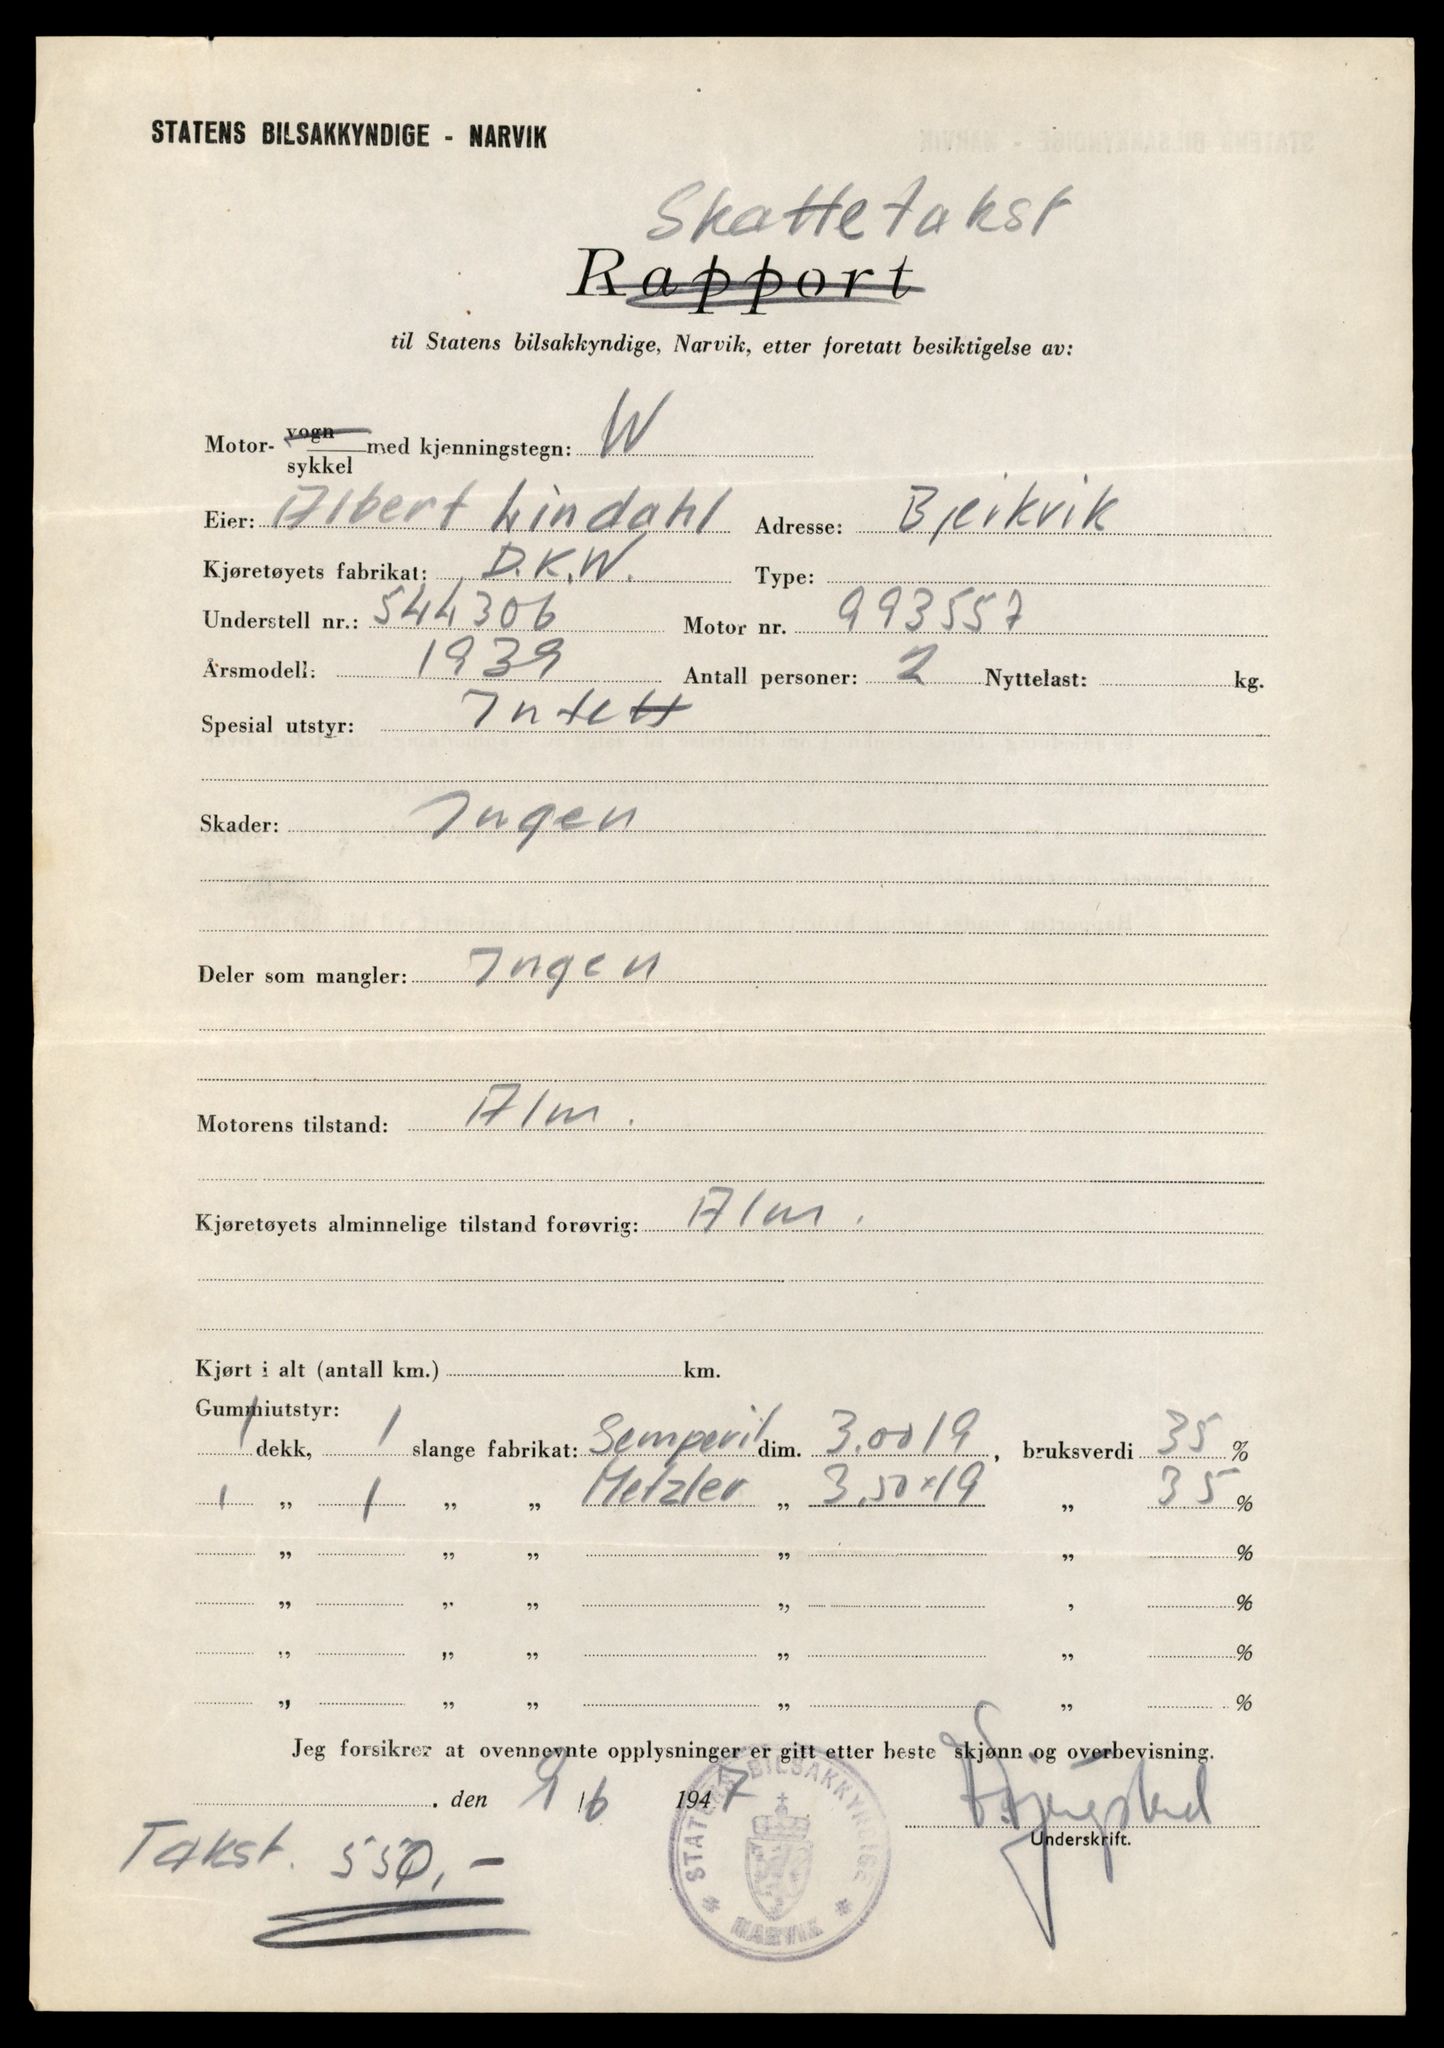 STATENS BILSAKKYNDIGE - NARVIK
Skattetakst
Rapport
til Statens bilsakkyndige, Narvik, etter foretatt besiktigelse av:
Motor- vogn sykkel med kjenningstegn: W
Eier: Albert Lindahl Adresse: Bjeikvik
Kjøretøyets fabrikat: D.K.W. Type:
Understell nr.: 544306 Motor nr. 993557
Årsmodell: 1939 Antall personer: 2 Nyttelast: kg.
Spesial utstyr: Intett
Skader: Ingen
Deler som mangler: Ingen
Motorens tilstand: Alm.
Kjøretøyets alminnelige tilstand forøvrig: Alm.
Kjørt i alt (antall km.) km.
Gummiutstyr:
1 dekk, 1 slange fabrikat: Semperit dim. 3.00 19, bruksverdi 35 %
1 „ 1 „ „ Metzler „ 3.50×19 „ 35 %
„ „ „ „ „ %
„ „ „ „ , %
„ „ „ „ „ %
„ „ „ „ „ %
Jeg forsikrer at ovennevnte opplysninger er gitt etter beste skjønn og overbevisning.
. den 9/6 1947
Underskrift.
Takst. 550,-
STATENS BILSAKKYNDIGE
NARVIK